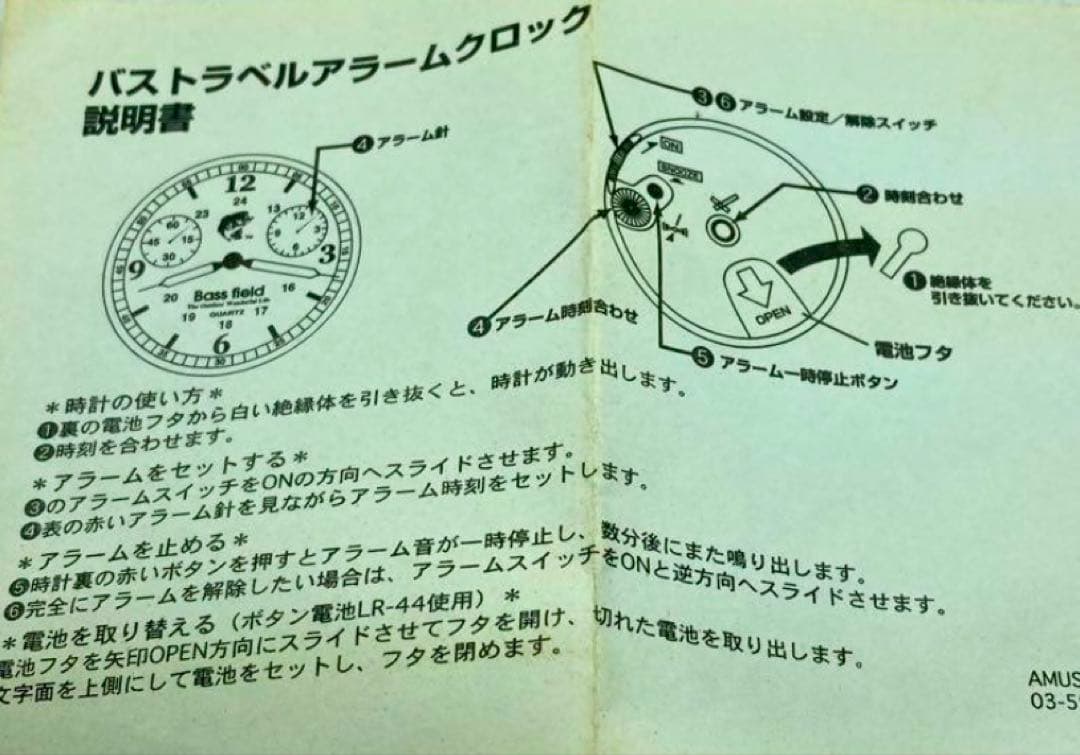 バストラベルアラームクロック
説明書
❹アラーム針
❸❻アラーム設定／解除スイッチ
ON
SNOOZE
❷時刻合わせ
❶絶縁体を
引き抜いてください。
OPEN
電池フタ
❹アラーム時刻合わせ
❺アラーム一時停止ボタン
60
12
24
23
13
60
45 15
30
12
3
6
9
9
3
Bass field
The Outdoor Wonderful Life
QUARTZ
20
19
18
17
16
6
30
＊時計の使い方＊
❶裏の電池フタから白い絶縁体を引き抜くと、時計が動き出します。
❷時刻を合わせます。
＊アラームをセットする＊
❸のアラームスイッチをONの方向へスライドさせます。
❹表の赤いアラーム針を見ながらアラーム時刻をセットします。
＊アラームを止める＊
❺時計裏の赤いボタンを押すとアラーム音が一時停止し、数分後にまた鳴り出します。
❻完全にアラームを解除したい場合は、アラームスイッチをONと逆方向へスライドさせます。
＊電池を取り替える（ボタン電池LR-44使用）＊
電池フタを矢印OPEN方向にスライドさせてフタを開け、切れた電池を取り出します。
文字面を上側にして電池をセットし、フタを閉めます。
AMUS
03-5